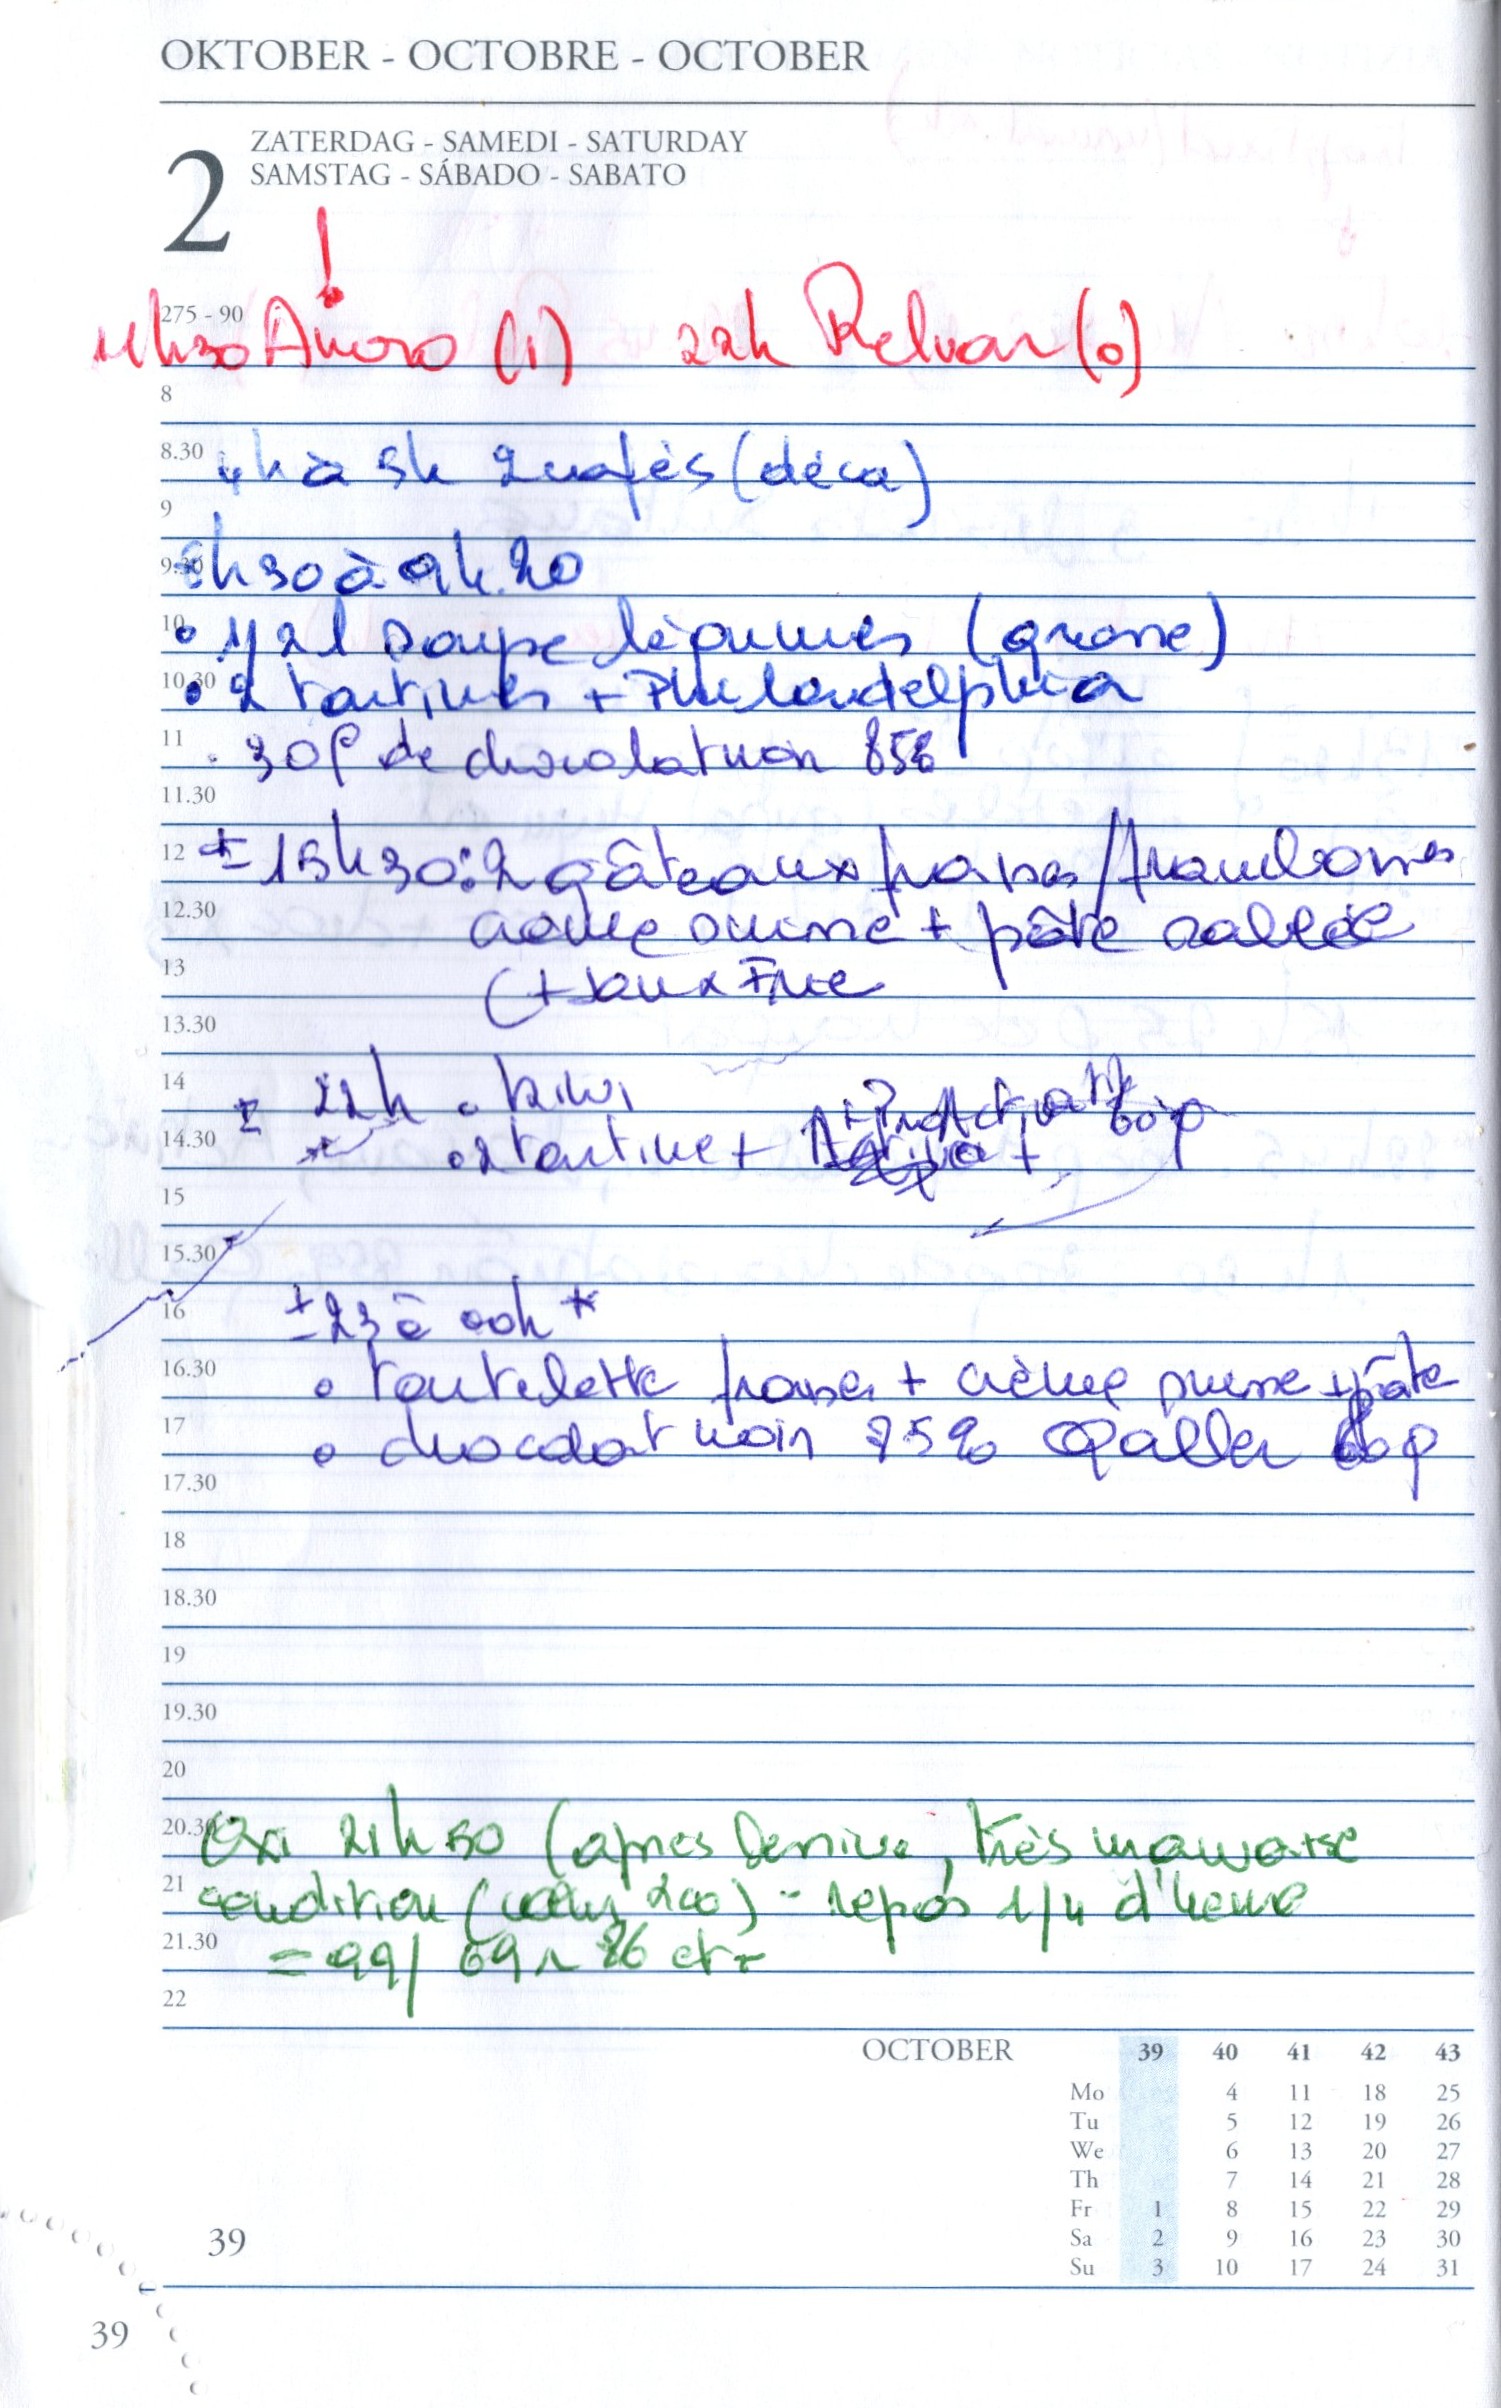 OKTOBER - OCTOBRE - OCTOBER
2
ZATERDAG - SAMEDI - SATURDAY
SAMSTAG - SÁBADO - SABATO
!
275 - 90
(1) 22h Relvar (0)
8
8.30
4h à 5h 2 cafés (déca)
9
9.30
8h30 à 9h.20
10
• 1/2 l soupe légumes (grosse)
10.30
• 2 tartines + Philadelphia
11
• 30g de chocolat noir 85%
11.30
12
± 15h30: 2 gâteaux fraises/framboises
12.30
crème suisse + pâte sablée
13
(+ Jeux
13.30
14
± 22h • kiwi
+ ProActiv 60g
14.30
• 2 tartine +
15
15.30
16
± 23 à 00h *
16.30
• tartelette fraises + crème suisse + pâte
17
• chocolat noir 75% Galler 60g
17.30
18
18.30
19
19.30
20
20.30
21h50 (après Denise, très mauvaise
21
condition ( 200) - repos 1/4 d'heure
21.30
= 99/69 86
22
OCTOBER 39 40 41 42 43
Mo 4 11 18 25
Tu 5 12 19 26
We 6 13 20 27
Th 7 14 21 28
Fr 1 8 15 22 29
Sa 2 9 16 23 30
Su 3 10 17 24 31
39
39